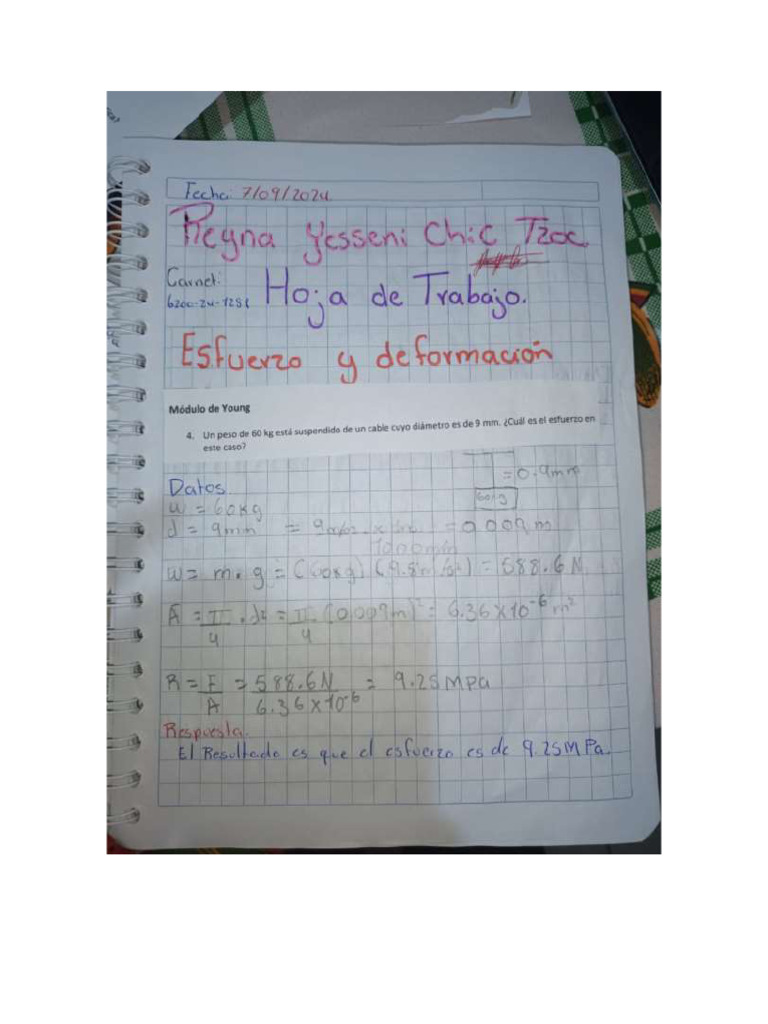 Fecha: 7/09/2024
Reyna Yesseni Chic Tzoc.
Carnet:
6200-24-1281
Hoja de Trabajo.
Esfuerzo y deformación
Módulo de Young
4. Un peso de 60 kg está suspendido de un cable cuyo diámetro es de 9 mm. ¿Cuál es el esfuerzo en
este caso?
= 0.9mm
60kg
Datos
w = 60kg
d = 9mm = 0.009 m
1000mm
w = m . g = (60kg) (9.8m/s²) = 588.6 N
A = π/4 . d² = π/4 (0.009m)² = 6.36 x 10⁻⁶ m²
R = F/A = 588.6N / 6.36 x 10⁻⁶ = 9.25 MPa
Respuesta.
El Resultado es que el esfuerzo es de 9.25 MPa.